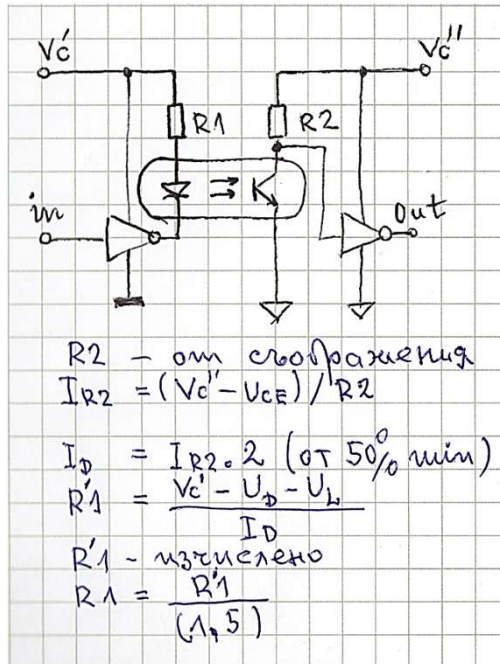 Vc' Vc''
R1 R2
in out
R2 – от съображения
IR2 = (Vc'' – UCE) / R2
ID = IR2 . 2 (от 50% min)
R'1 = Vc' – UD – UL
ID
R'1 – изчислено
R1 = R'1
(1,5)